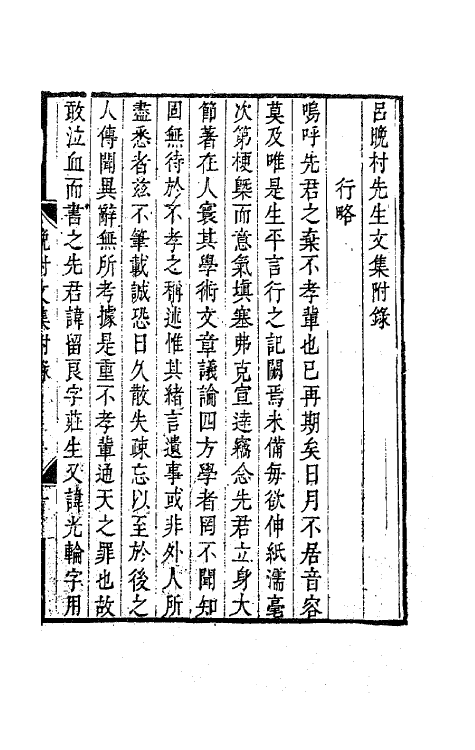 呂晩村先生文集附錄
行略
嗚呼先君之棄不孝輩也已再期矣日月不居音容
莫及唯是生平言行之記闕焉未備每欲伸紙濡毫
次第梗槩而意氣塡塞弗克宣逹竊念先君立身大
節著在人寰其學術文章議論四方學者罔不聞知
固無待於不孝之稱述惟其緒言遺事或非外人所
盡悉者茲不筆載誠恐日久散失疎忘以至於後之
人傳聞異辭無所考據是重不孝輩通天之罪也故
敢泣血而書之先君諱留良字莊生又諱光輪字用
晩村文集附錄